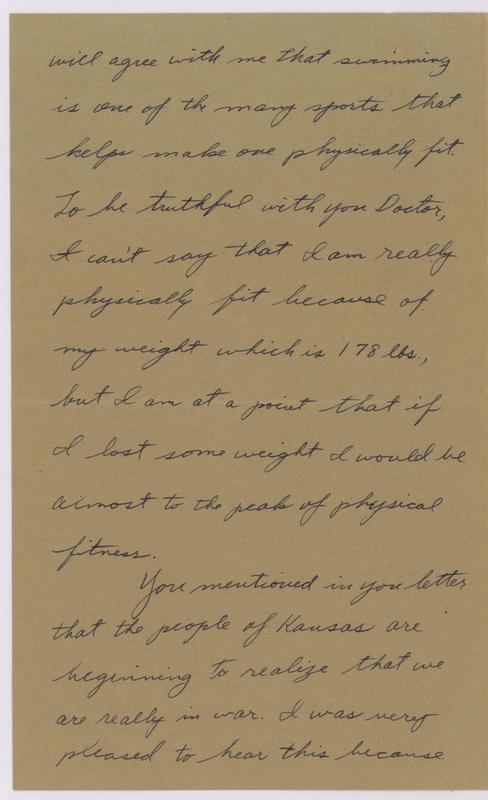 will agree with me that swimming
is one of the many sports that
helps make one physically fit.
To be truthful with you Doctor,
I can't say that I am really
physically fit because of
my weight which is 178 lbs.,
but I am at a point that if
I lost some weight I would be
almost to the peak of physical
fitness.
You mentioned in you letter
that the people of Kansas are
beginning to realize that we
are really in war. I was very
pleased to hear this because